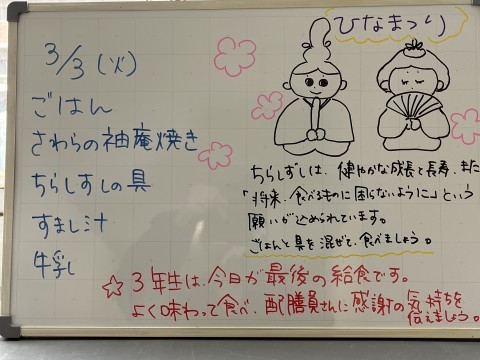 3/3(火)
ごはん
さわらの袖庵焼き
ちらしずしの具
すまし汁
牛乳
ひなまつり
ちらしずしは、健やかな成長と長寿、また
「将来、食べるものに困らないように」という
願いが込められています。
ごはんと具を混ぜて、食べましょう。
☆3年生は、今日が最後の給食です。
よく味わって食べ、配膳員さんに感謝の気持ちを
伝えましょう。